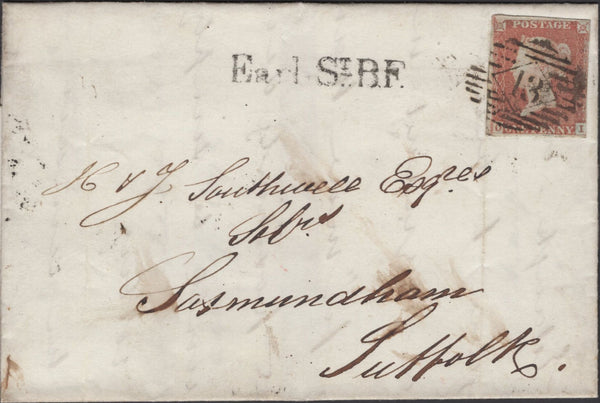 POSTAGE
Earl St B.F.
13
O ONE PENNY I
H & J. Southwell Esqres
Solrs
Saxmundham
Suffolk.